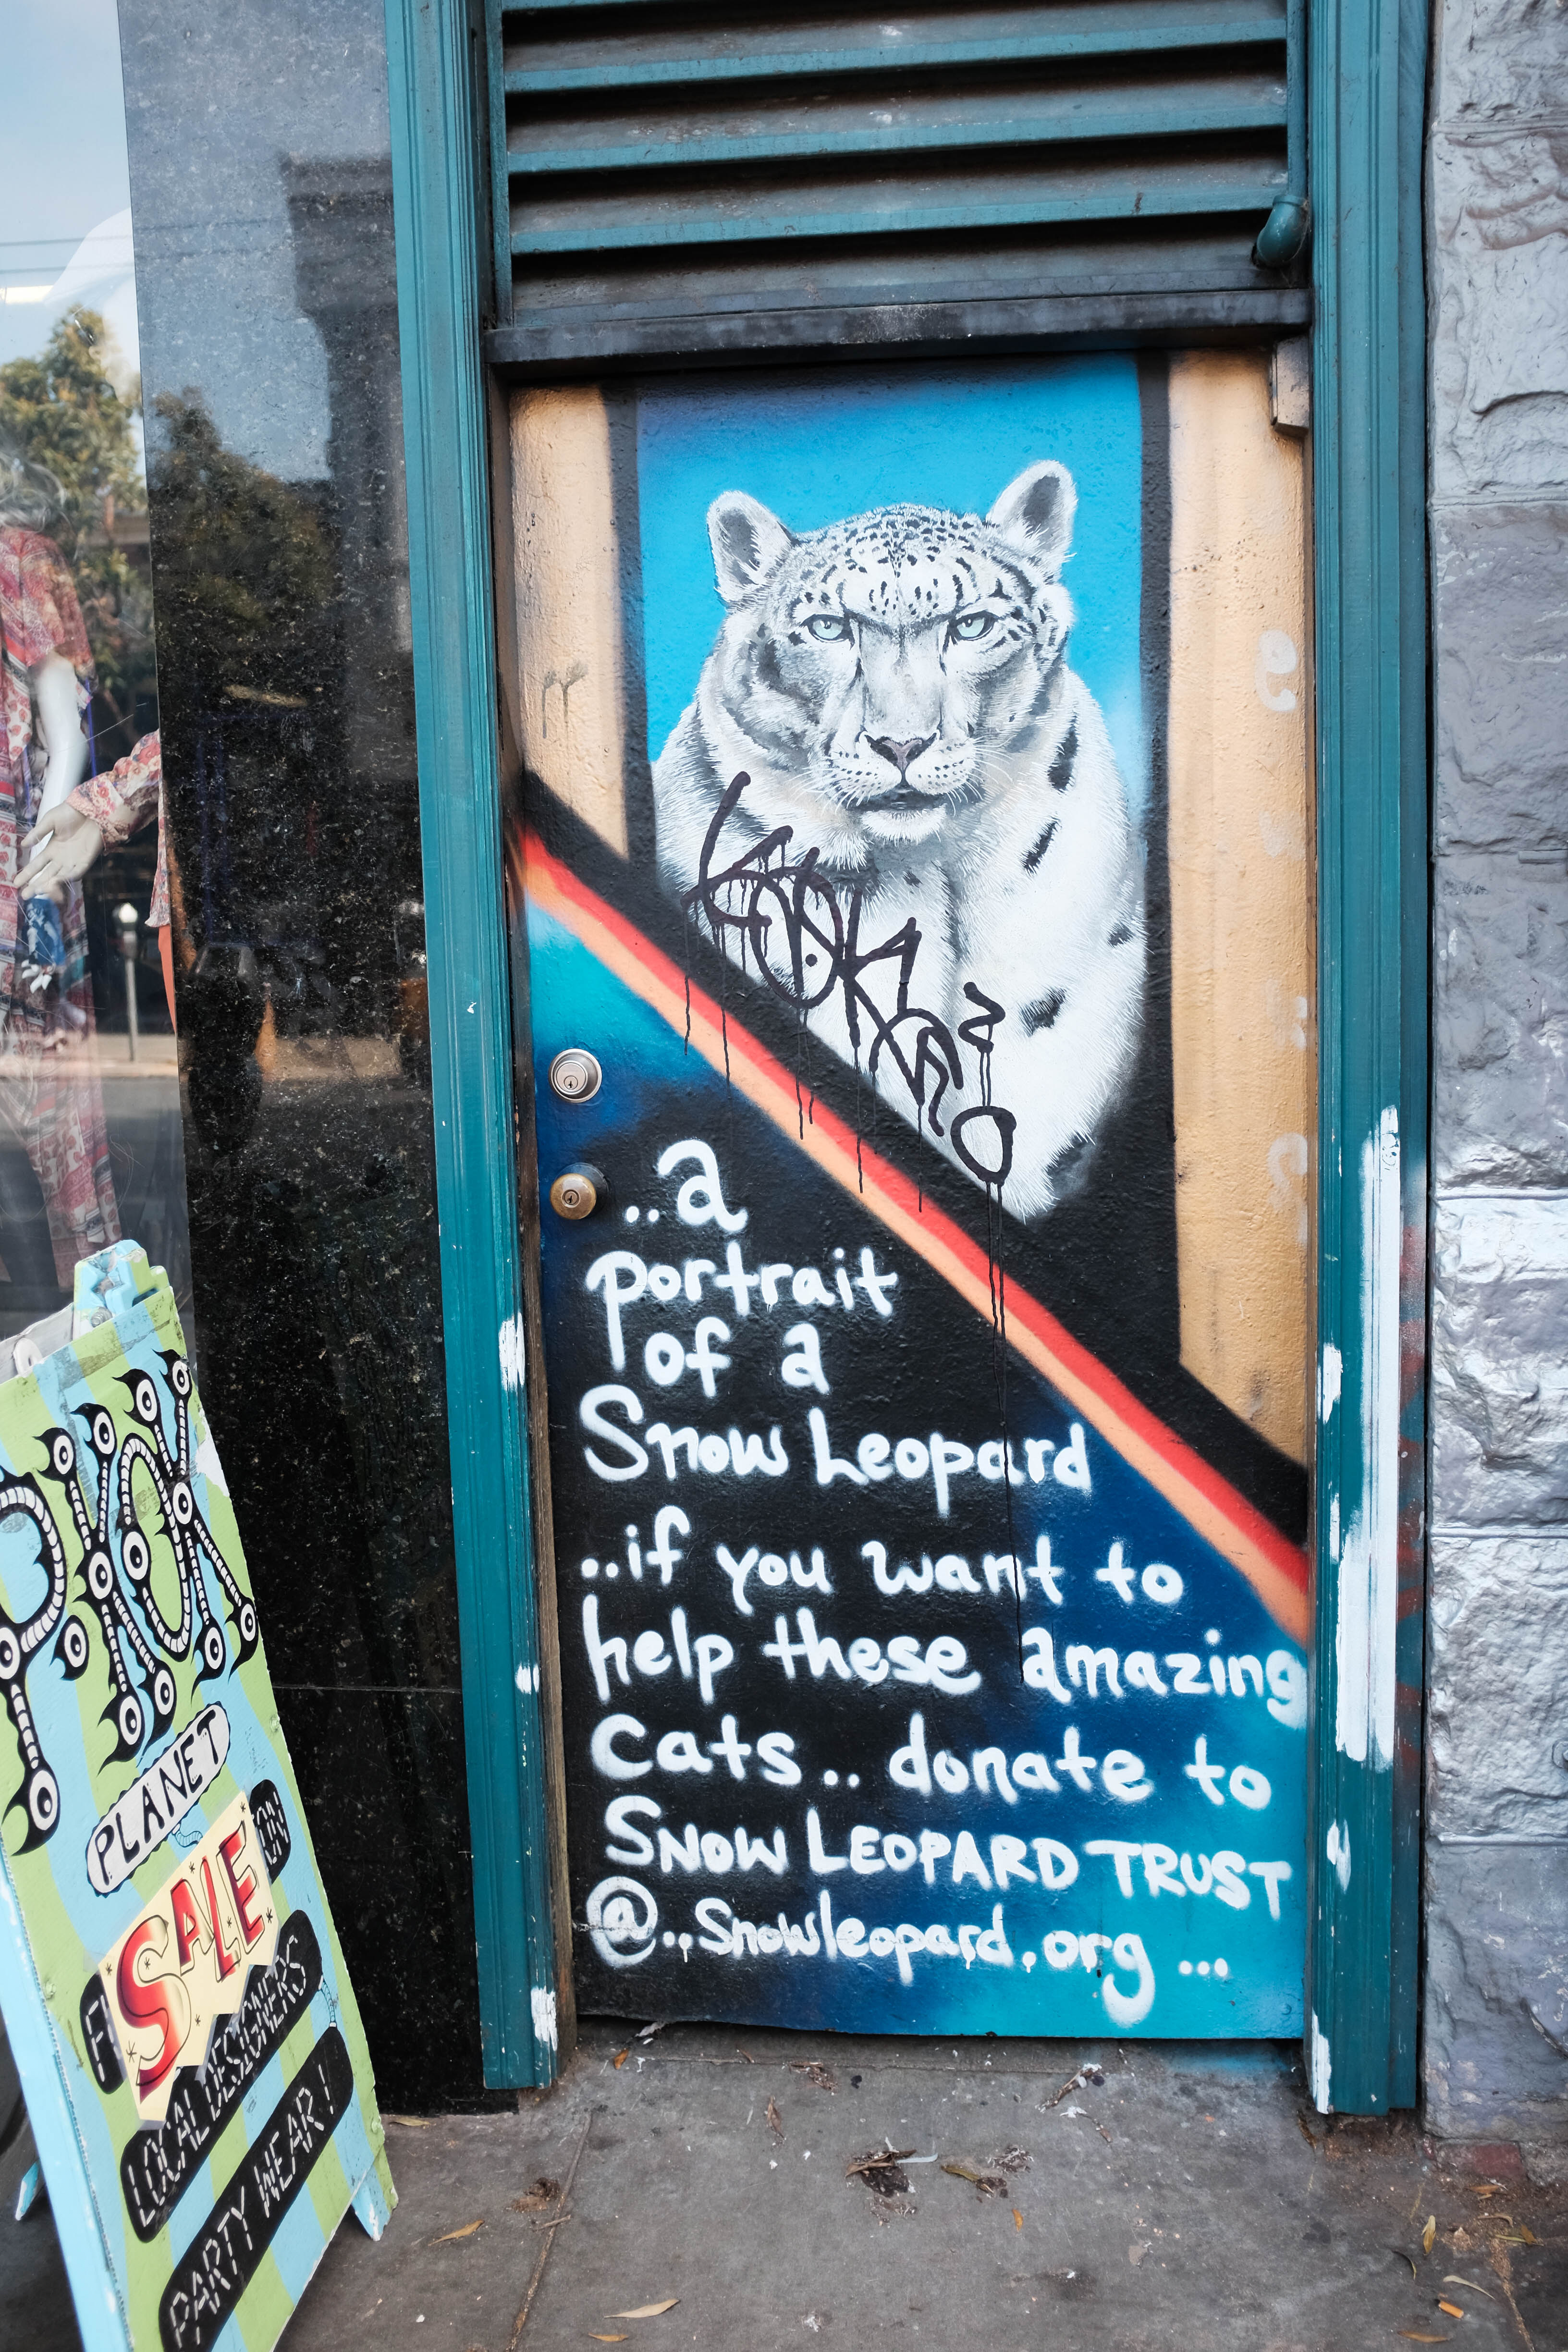 ..a
portrait
of a
Snow Leopard
..if you want to
help these amazing
Cats.. donate to
SNOW LEOPARD TRUST
@..Snowleopard.org...
PLANET
ON
SALE
LOCAL DESIGNERS
PARTY WEAR!